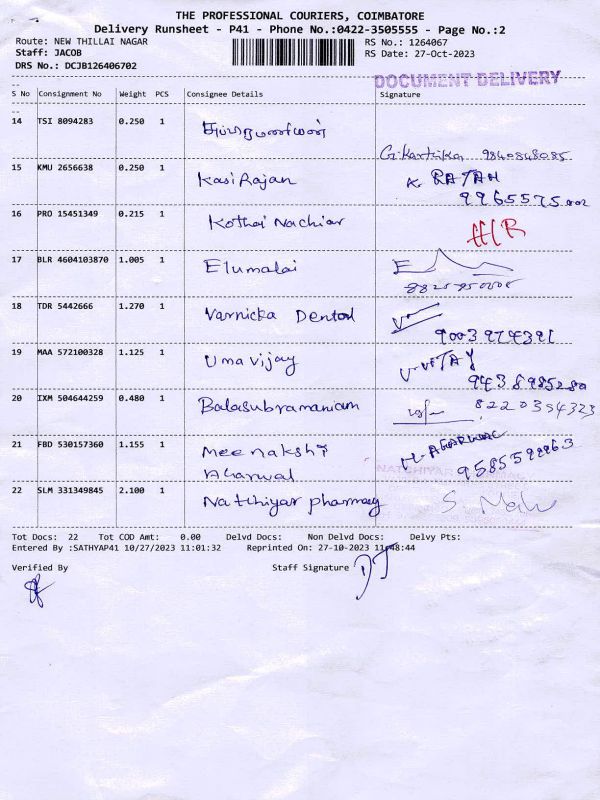 THE PROFESSIONAL COURIERS, COIMBATORE
Delivery Runsheet - P41 - Phone No.:0422-3505555 - Page No.:2
Route: NEW THILLAI NAGAR RS No.: 1264067
Staff: JACOB RS Date: 27-Oct-2023
DRS No.: DCJB126406702
DOCUMENT DELIVERY
S No Consignment No Weight PCS Consignee Details Signature
14 TSI 8094283 0.250 1 சுப்பிரமணியன்
G.Karthika 9840848085
15 KMU 2656638 0.250 1 Kasi Rajan K. RATAN
9965575002
16 PRO 15451349 0.215 1 Kothai Nachiar
17 BLR 4604103870 1.005 1 Elumalai
18 TDR 5442666 1.270 1 Varnicka Dental
9003974391
19 MAA 572100328 1.125 1 Uma Vijay V-VIJAY
9438985280
20 IXM 504644259 0.480 1 Balasubramaniam 8220354323
21 FBD 530157360 1.155 1 Meenakshi M-AGARWAL
Agarwal
22 SLM 331349845 2.100 1 Natchiyar pharmacy
Tot Docs: 22 Tot COD Amt: 0.00 Delvd Docs: Non Delvd Docs: Delvy Pts:
Entered By :SATHYAP41 10/27/2023 11:01:32 Reprinted On: 27-10-2023 11:48:44
Verified By Staff Signature